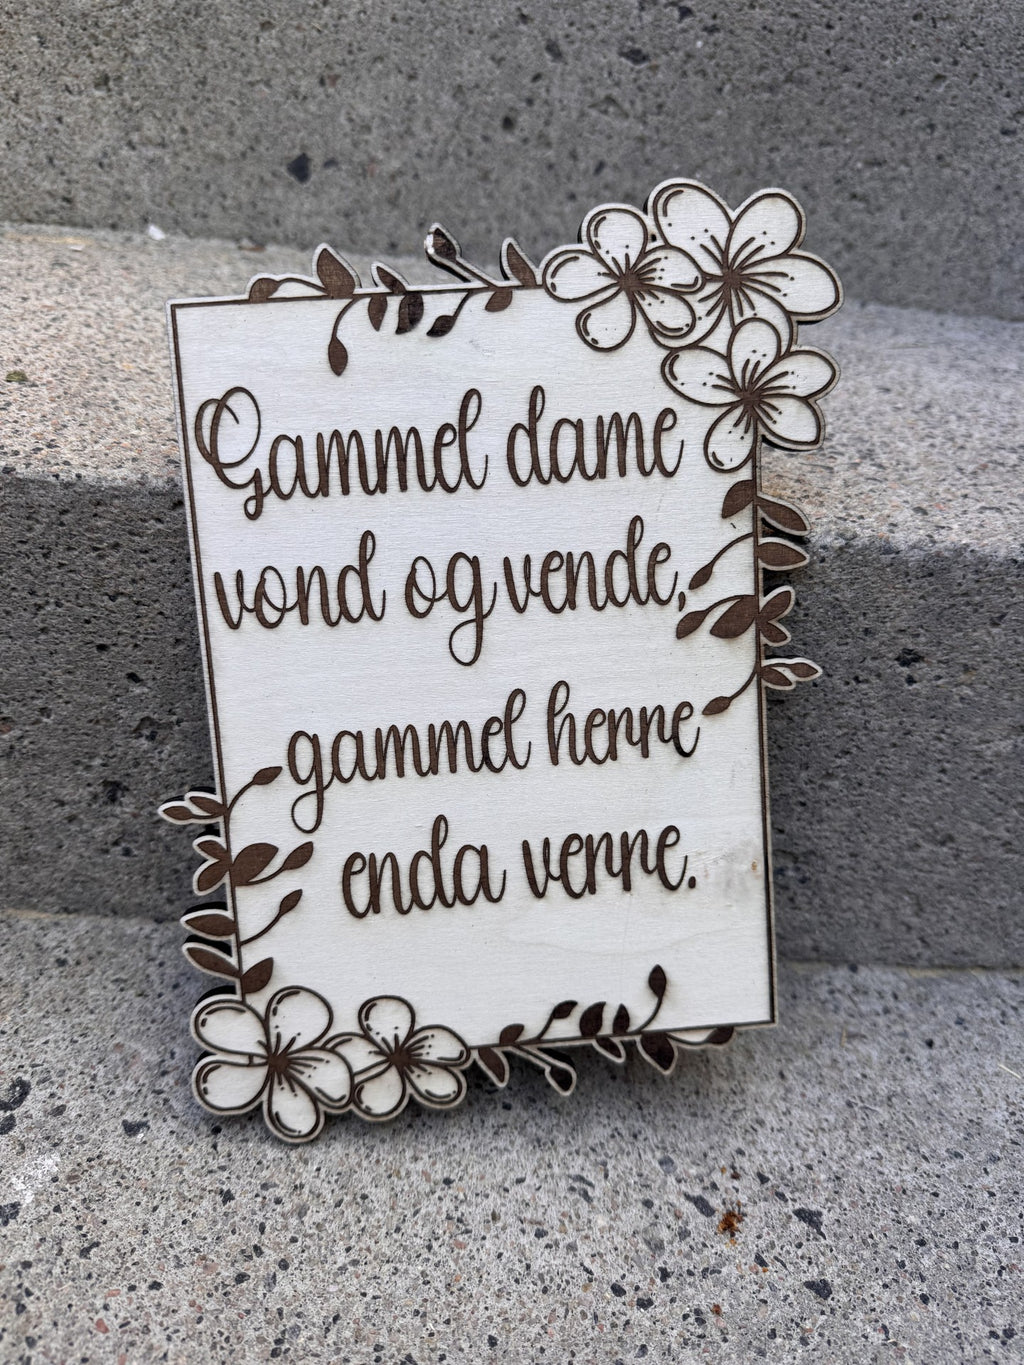 Gammel dame
vond og vende,
gammel herre
enda verre.